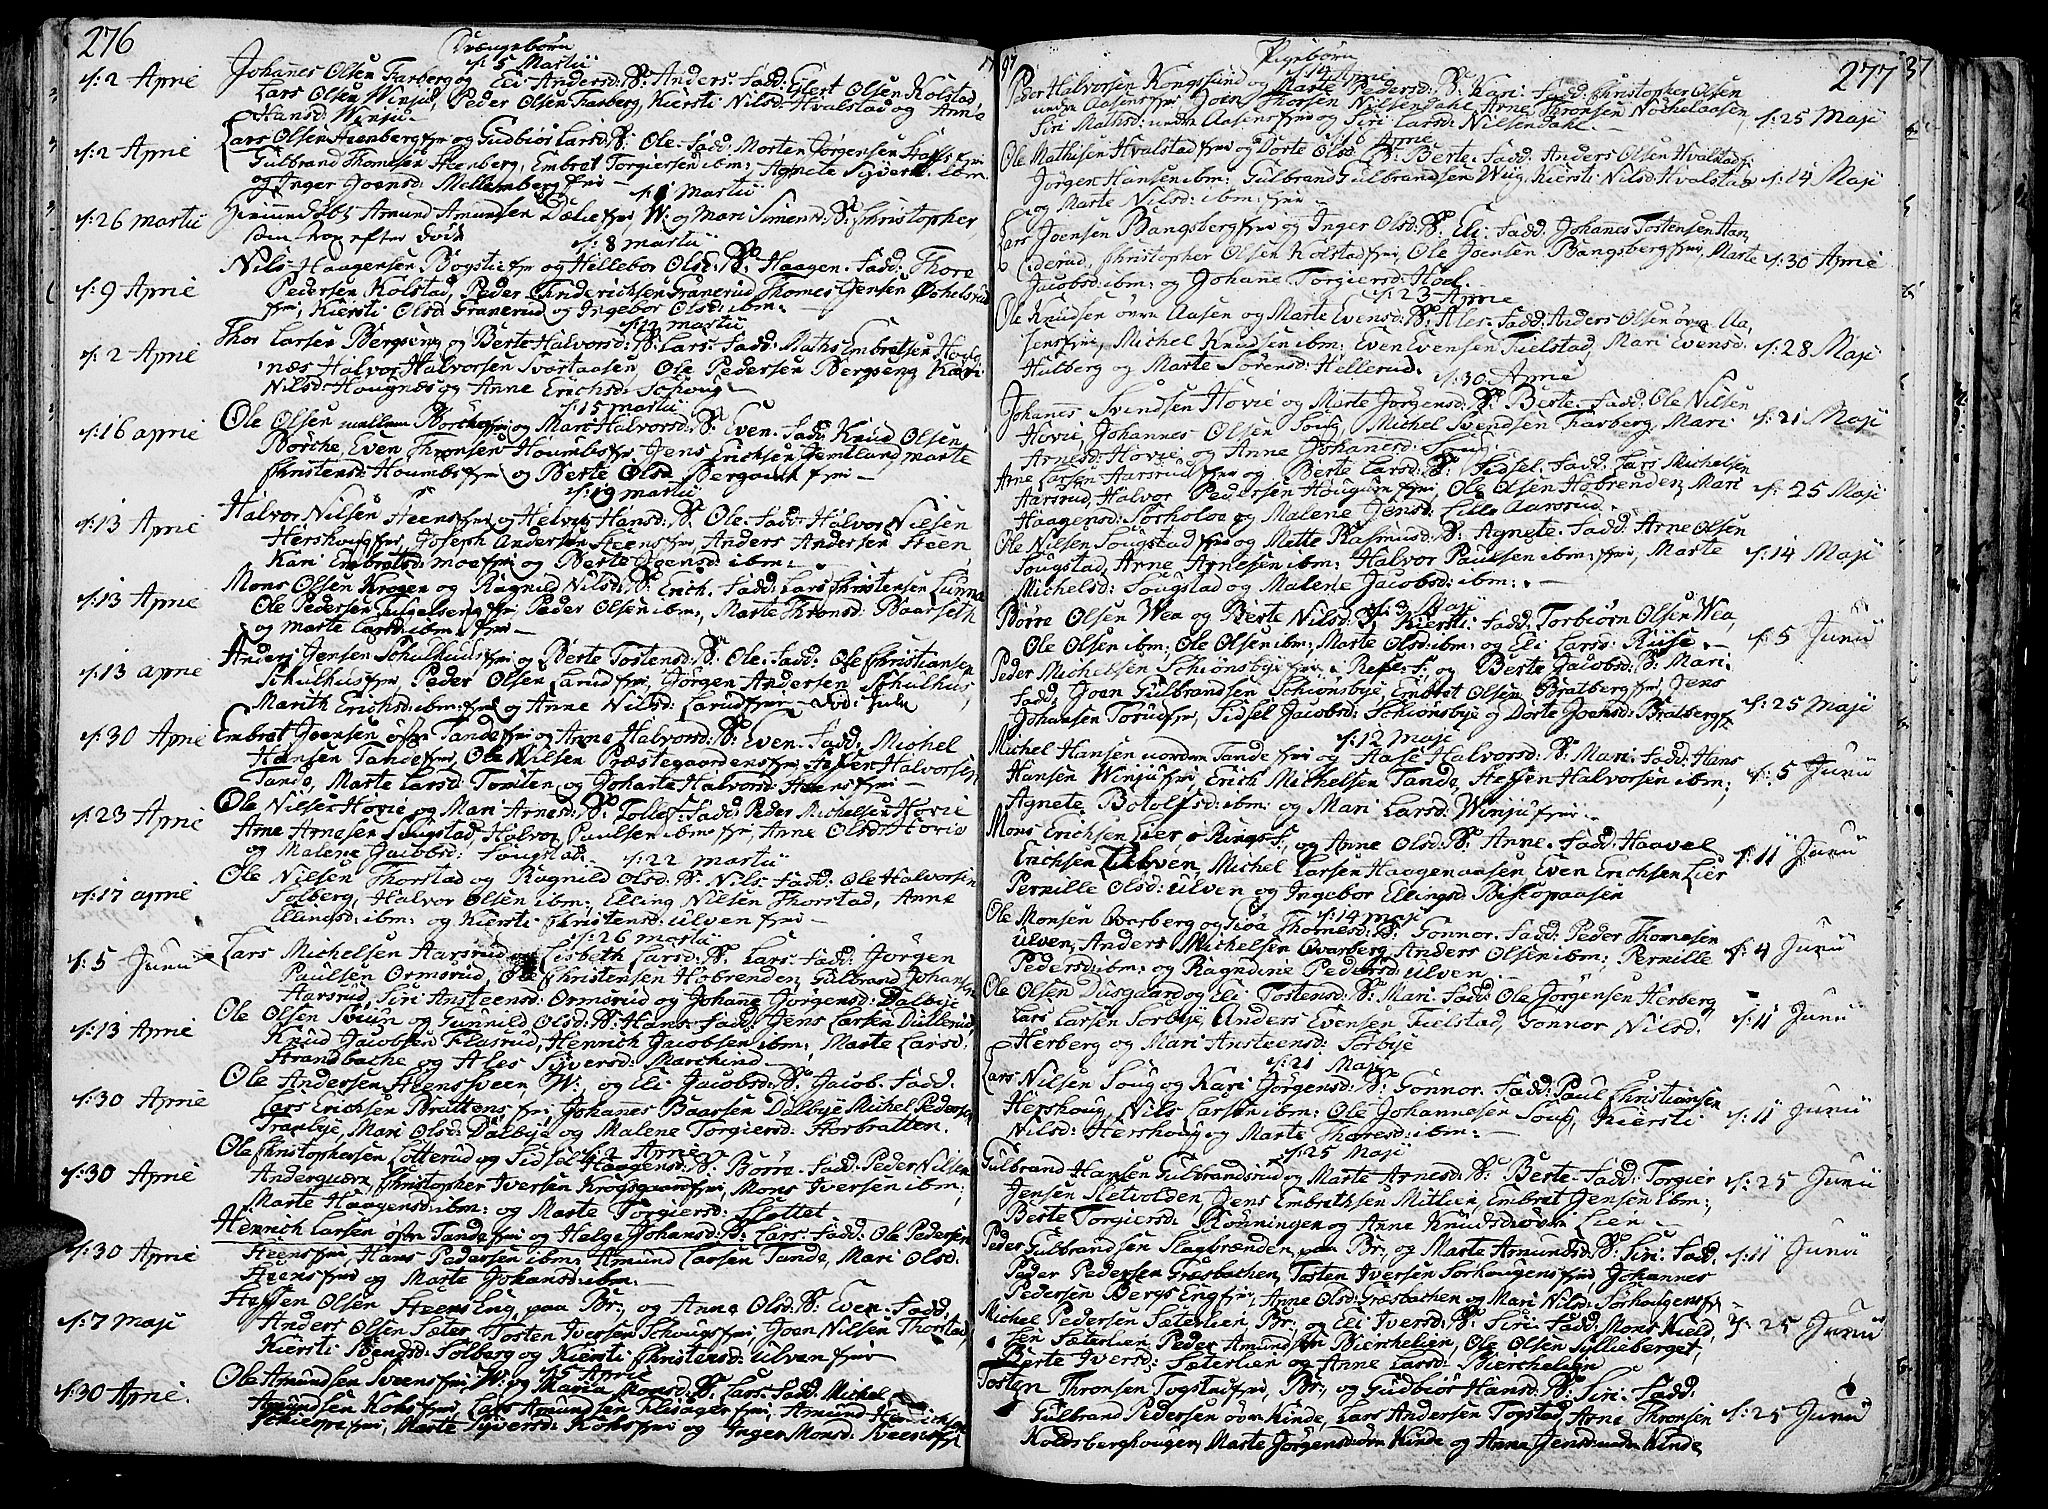 276
Drængebørn
d: 5 Martii
d: 2 April Johannes Olsen Farberg og Eli Andersd: B: Anders. Fadd: Elert Olsen Kolstad,
Lars Olsen Winju, Peder Olsen Farberg, Kiersti Nilsd: Hvalstad og Anne
Hansd: Winju.
Lars Olsen Steenberg fri og Gudbiør Larsd: B: Ole. Fadd: Morten Jørgensen
d: 2 April Gulbrand Thomesen Steenberg, Embret Torgiersen ibm: Agnete Syvertsd: ibm:
og Inger Joensd: Mellemberg fri
d: 1 Martii
d: 26 martii Amund Amundsen Dælie fri, W: og Mari Simensd: B: Christopher
som strax efter døde
d: 8 martii
Nils Haagensen Bogstie fri og Hellebor Olsd: B: Haagen. Fadd: Thore
d: 9 April Pedersen Kolstad, Peder Henderichsen Granerud Thomes Jensen
fri, Kiersti Olsd: Granerud og Ingebor Olsd: ibm:
d: 12 martii
Thor Larsen Bergseng og Berte Halvorsd: B: Lars. Fadd: Maths Embretsen
d: 2 April næs Halvor Halvorsen Svartaasen, Ole Pedersen Bergseng Kari
Nilsd: Hougnæs og Anne Erichsd: Schoug
d: 15 martii
Ole Olsen mellem Børche fri og Mari Halvorsd: B: Even. Fadd: Knud Olsen
d: 16 april Børche, Even Thronsen Houmb fri Jens Erichsen Jemtland, marte
Christensd: Houmb fri og Berte Olsd: Bergout fri
d: 19 martii
Halvor Nilsen Steens fri og Helvig Hansd: B: Ole. Fadd: Halvor Nielsen
d: 13 April Hershoug fri, Joseph Andersen Steens fri, Anders Andersen Steen
Kari Embretsd: moe fri og Berte Jensd: ibm:
Mons Olsen Krogen og Ragnild Nilsd: B: Erich. Fadd: Lars Christensen Lunna
d: 13 April Ole Pedersen fri Peder Olsen ibm, Marte Thronsd: Baarseth
og marte Larsd: ibm: fri
Anders Jensen Schulhuus fri og Berte Tostensd: B: Ole. Fadd: Ole Christiansen
d: 13 april Schulhus fri, Peder Olsen Larud fri, Jørgen Andersen Schulhus,
Marith Erichsd: ibm: fri og Anne Nilsd: Larud fri
d: 30 April Embret Joensen østre Tande fri og Anne Halvorsd: B: Even. Fadd: Michel
Hansen Tande fri, Ole Nilsen Præstegaardens fri Steffen Halvorsen
Tande, Marte Larsd: Tomten og Johanne Halvorsd: Steens fri
d: 23 April Ole Nilsen Hovie og Mari Arnesd: B: Tollef. Fadd: Peder Michelsen Hovie
Arne Arnesen Sougstad, Halvor Paulsen ibm: fri, Anne Olsd: Hovie
og Malene Jacobsd: Sougstad
d: 22 martii
Ole Nilsen Thorstad og Ragnild Olsd: B: Nils. Fadd: Ole Halvorsen
d: 17 april Solberg, Halvor Olsen ibm: Elling Nilsen Thorstad, Anne
Ellingsd: ibm: og Kiersti Christensd: ulven fri
d: 26 martii
Lars Michelsen Aarsrud og Lisbeth Larsd: B: Lars. Fadd: Jørgen
d: 5 Junii Paulsen Ormsrud, Christensen Hobrenden, Gulbrand Johansen
Aarsrud, Siri Ansteensd: Ormsrud og Johane Jørgensd: Dalbye
Ole Olsen Sveen og Gunnild Olsd: B: Hans. Fadd: Jens Larsen Dullerud,
d: 13 April Knud Jacobsen Flasrud, Henrich Jacobsen ibm:, Marte Larsd:
Strandbache og Ales Syversd: Marchind
Ole Andersen Steensveen, W:, og Eli Jacobsd: B: Jacob. Fadd:
d: 30 April Lars Erichsen Bruttens fri, Johannes Baarsen Dalbye Michel Pedersen
Tranbye, Mari Olsd: Dalbye og Malene Torgiersd: Storbratten.
d: 2 April
Ole Christophersen Lotterud og Sidsel Haagensd: B: Børre. Fadd: Peder Nilsen
d: 30 April Anderquærn, Christopher Iversen Krogsgaard fri, Mons Iversen ibm:,
Marte Haagensd: ibm: og Marte Torgiersd: Slettet
Henrich Larsen østre Tande fri og Helge Johansd: B: Lars. Fadd: Ole Pedersen
d: 30 April Steens fri, Hans Pedersen ibm: Amund Larsen Tande, Mari Olsd:
Steens fri og Marte Johansd: ibm:
Steffen Olsen Steens Eng, paa Br:, og Anne Olsd: B: Even. Fadd:
d: 7 maji Anders Olsen Sæter, Tosten Iversen Schougs fri, Joen Nilsen Thorstad,
Kiersti Bengsd: Solberg og Kiersti Christensd: ulven fri
d: 5 April
Ole Amundsen Sveens fri W: og Maria Monsd: B: Lars. Fadd: Michel
d: 30 April. Amundsen Kohs fri, Lars Amundsen Flisager fri, Amund Henrichsen
fri, Marte Syversd: Kohs fri og Inger Monsd: Sveens fri
97
Pigebørn
277
d: 14 April
Peder Halvorsen Kongslund og Marte Pedersd: B: Kari. Fadd: Christopher Olsen
nedre Aasens fri, Joen Thorsen Nilsendahl, Arne Thronsen Nochelaasen,
Siri Mathisd: nedre Aasens fri og Siri Larsd: Nilsendahl. d: 25 Maji
d: 16 April
Ole Mathisen Hvalstad fri og Dorte Olsd: B: Berte. Fadd: Anders Olsen Hvalstad f:
Jørgen Hansen ibm: Gulbrand Gulbrandsen Wiig, Kiersti Nilsd: Hvalstad d: 14 Maji
og Marte Nilsd: ibm: fri
Lars Joensen Bangsberg fri og Inger Olsd: B: Eli. Fadd: Johannes Tostensen Han,
derud, Christopher Olsen Kolstad fri, Ole Joensen Bangsberg fri, Marte d: 30 April
Jacobsd: ibm: og Johanne Torgiersd: Hoel.
d: 23 April
Ole Knudsen øvre Aasen og Marte Evensd: B: Ales. Fadd: Anders Olsen øvre Aa,
sens fri, Michel Knudsen ibm: Even Evensen Fielstad, Mari Evensd: d: 28 Maji
Hulberg og Marte Sørensd: Hellerud.
d: 30 April
Johannes Svendsen Hovie og Marte Jørgensd: B: Berte. Fadd: Ole Nilsen
Hovie, Johannes Olsen Soug, Michel Svendsen Farberg, Mari d: 21 Maji
Arnesd: Hovie og Anne Johannesd: Soug.
Arne Larsen Aarsrud fri og Berte Larsd: B: Sidsel. Fadd: Lars Michelsen
Aarsrud, Halvor Pedersen Hougum fri, Ole Olsen Hobrenden, Mari d: 25 Maji
Haagensd: Sørholoe og Malene Jensd: Lille Aarsrud.
Ole Nilsen Sougstad fri og Mette Rasmusd: B: Agnete. Fadd: Arne Olsen
Sougstad, Arne Arnesen ibm: Halvor Paulsen ibm: fri, Marte d: 14 Maji
Michelsd: Sougstad og Malene Jacobsd: ibm:
d: 3 Maji
Børre Olsen Wea og Berte Nilsd: B: Kiersti. Fadd: Torbiørn Olsen Wea,
Ole Olsen ibm: Ole Olsen ibm: Marte Olsd: ibm: og Eli Larsd: Riise. d: 5 Junii
Peder Michelsen Schiønsbye fri og Berte Jacobsd: B: Mari.
Fadd: Joen Gulbrandsen Schiønsbye, Embret Olsen Bratberg fri, Jens
Johansen Torud fri, Sidsel Jacobsd: Schiønsbye og Dorte Joensd: Bratberg f: d: 25 Maji
d: 12 Maji
Michel Hansen nordre Tande fri og Aase Halvorsd: B: Mari. Fadd: Hans
Hansen Winju fri, Erich Michelsen Tande, Steffen Halvorsen ibm:, d: 5 Junii
Agnete Botolfsd: ibm: og Mari Larsd: Winju fri.
Mons Erichsen Lier o Rings S., og Anne Olsd: B: Anne. Fadd: Haavel
Erichsen Ulven, Michel Larsen Haagenaasen, Even Erichsen Lier d: 11 Junii
Pernille Olsd: ulven og Ingebor Ellingsd: Biskopaasen
d: 14 maji
Ole Monsen Qvarberg og Siøa Thomesd: B: Gonnor. Fadd: Peder Thomesen
ulven, Anders Michelsen Qvarberg, Anders Olsen ibm:, Pernille d: 4 Junii
Pedersd: ibm: og Ragndine Pedersd: ulven.
Ole Olsen Dusgaard og Eli Tostensd: B: Mari. Fadd: Ole Jørgensen Herberg
Lars Larsen Sorbye, Anders Evensen Fielstad, Gonnor Nilsd: d: 11 Junii
Herberg og Mari Ansteensd: Sorbye
d: 21 Maji
Lars Nilsen Soug og Kari Jørgensd: B: Gonnor. Fadd: Paul Christiansen
Hershoug Nils Larsen ibm: Ole Johannesen Soug, Kiersti d: 11 Junii
Nilsd: Hershoug og Marte Thoresd: ibm:
d: 25 Maji
Gulbrand Hansen Gulbrandsrud og Marte Arnesd: B: Berte. Fadd: Torgier
Jensen Sletvolden, Jens Embretsen Mitlien, Embret Jensen ibm:, d: 25 Junii
Berte Torgiersd: Rønningen og Anne Knudsd: øvre Lien
Peder Gulbrandsen Slagbrænden, paa Br:, og Marte Amundsd: B: Siri. Fadd: d: 11 Junii
Peder Pedersen Græsbachen, Tosten Iversen Sørhougens fri, Johannes
Pedersen Bergs Eng fri, Anne Olsd: Græsbachen og Mari Nilsd: Sørhougens f:
Michel Pedersen Sæterlien Br:, og Eli Iversd: B: Siri. Fadd: Mons Kield,
sen Sæterlien, Peder Amundsen Bierchelien, Ole Olsen Syllieberget, d: 25 Junii
Berte Iversd: Sæterlien og Anne Larsd: Bierchelien
Tosten Thronsen Togstad fri, Br:, og Gudbiør Hansd: B: Siri. Fadd.
Gulbrand Pedersen øvre Kinde, Lars Andersen Togstad, Arne Thronsen d: 25 Junii
Koldsberghougen, Marte Jørgensd: øvre Kinde og Anne Jensd: nedre Kinde